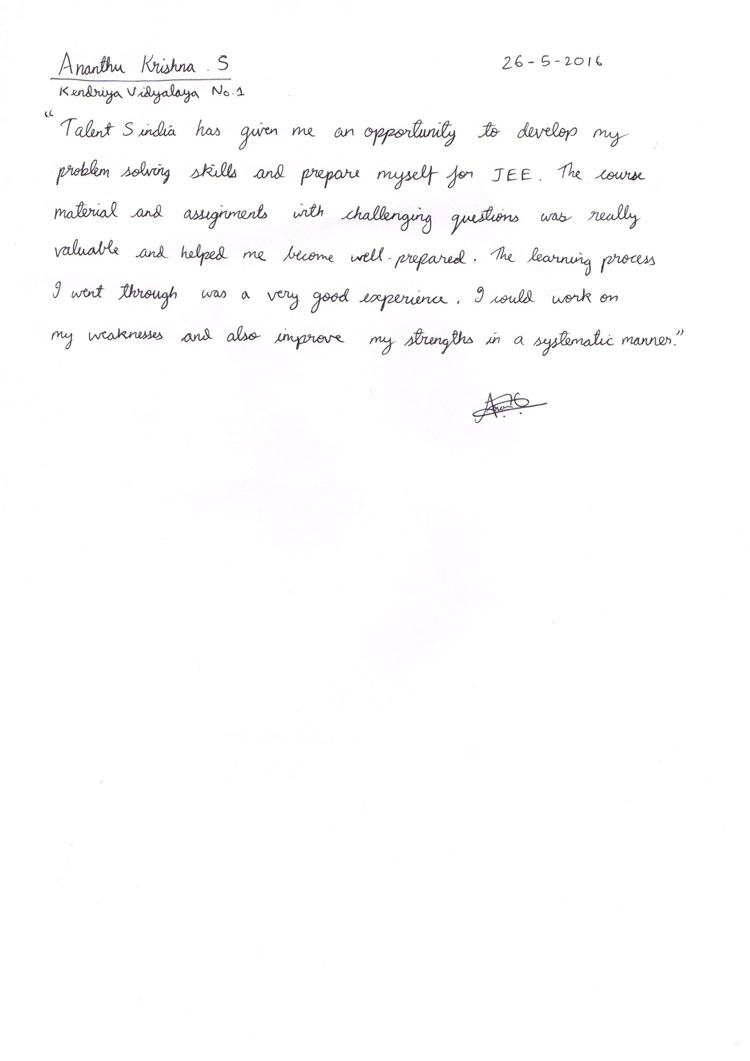 Ananthu Krishna . S
26-5-2016
Kendriya Vidyalaya No.1
"Talent S india has given me an opportunity to develop my
problem solving skills and prepare myself for JEE. The course
material and assignments with challenging questions was really
valuable and helped me become well-prepared. The learning process
I went through was a very good experience. I could work on
my weaknesses and also improve my strengths in a systematic manner."